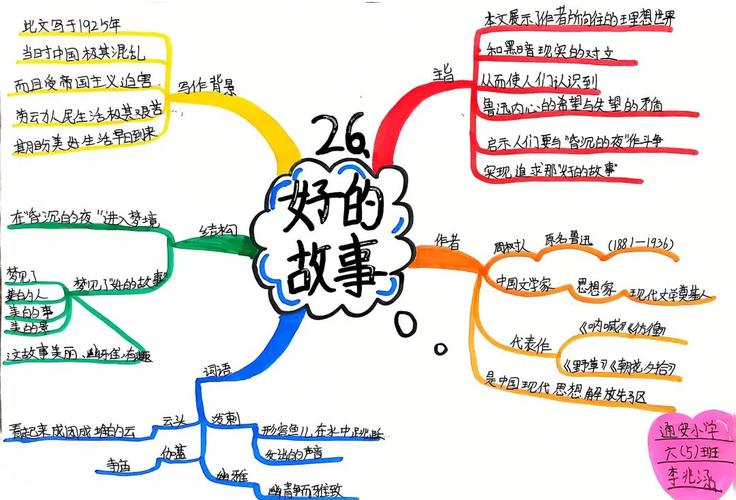 26、
好的
故事
写作背景
此文写于1925年
当时中国极其混乱
而且受帝国主义迫害
劳动人民生活极其艰苦
期盼美好生活早日到来
主旨
本文展示了作者所向往的理想世界
和黑暗现实的对立
从而使人们认识到
鲁迅内心的希望与失望的矛盾
启示人们要与"昏沉的夜"作斗争
实现追求那"好的故事"
结构
在"昏沉的夜"进入梦境
梦见了"好的故事"
梦见了
美的人
美的事
美的景
这故事美丽、幽雅、有趣
作者
周树人 原名鲁迅 (1881-1936)
中国文学家 思想家 现代文学奠基人
代表作
《呐喊》《彷徨》
《野草》《朝花夕拾》
是中国现代思想解放先驱
词语
云头
看起来成团成堆的云
泼剌
形容鱼儿在水中跳跃
发出的声音
伽蓝
寺庙
幽雅
幽静而雅致
通安小学
六(5)班
李兆涵